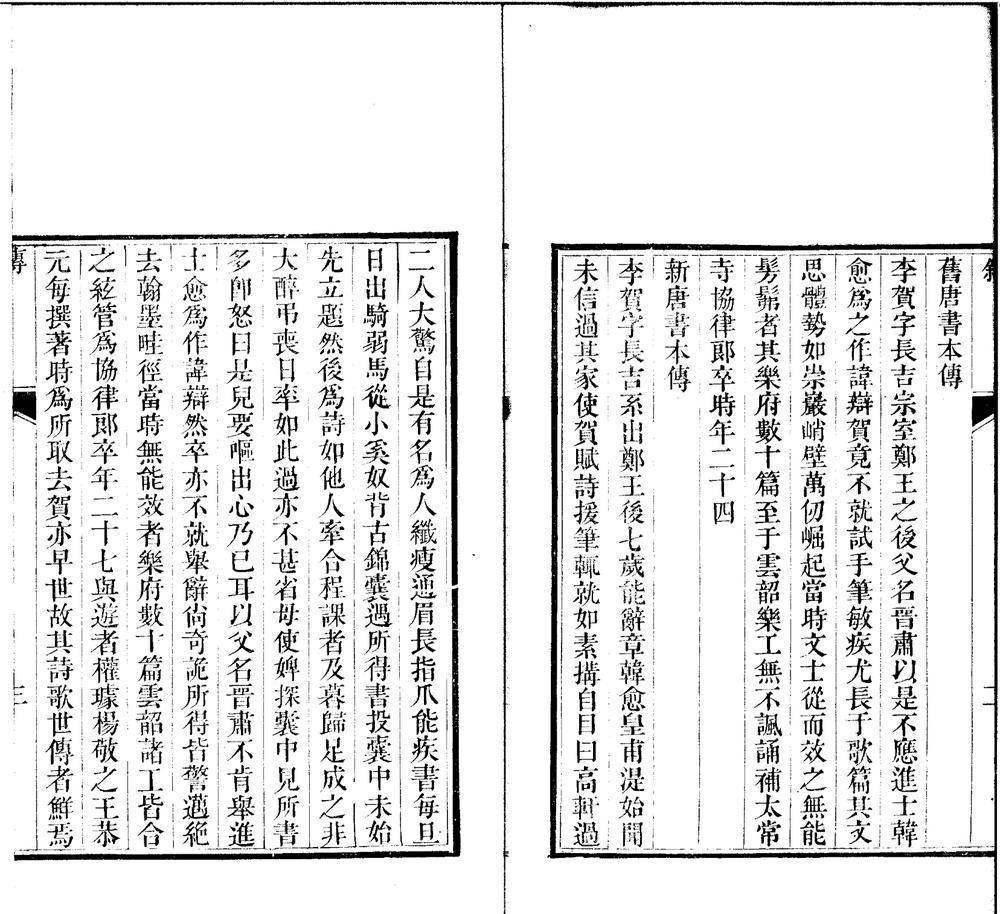 舊唐書本傳
李賀字長吉宗室鄭王之後父名晉肅以是不應進士韓
愈爲之作諱辯賀竟不就試手筆敏疾尤長于歌篇其文
思體勢如崇巖峭壁萬仞崛起當時文士從而效之無能
髣髴者其樂府數十篇至于雲韶樂工無不諷誦補太常
寺協律郎卒時年二十四
新唐書本傳
李賀字長吉系出鄭王後七歲能辭章韓愈皇甫湜始聞
未信過其家使賀賦詩援筆輒就如素搆自目曰高軒過
二人大驚自是有名爲人纖瘦通眉長指爪能疾書每旦
日出騎弱馬從小奚奴背古錦囊遇所得書投囊中未始
先立題然後爲詩如他人牽合程課者及暮歸足成之非
大醉弔喪日率如此過亦不甚省母使婢探囊中見所書
多卽怒曰是兒要嘔出心乃已耳以父名晉肅不肯舉進
士愈爲作諱辯然卒亦不就舉辭尙奇詭所得皆警邁絕
去翰墨畦徑當時無能效者樂府數十篇雲韶諸工皆合
之絃管爲協律郎卒年二十七與遊者權璩楊敬之王恭
元每撰著時爲所取去賀亦早世故其詩歌世傳者鮮焉
傳
三